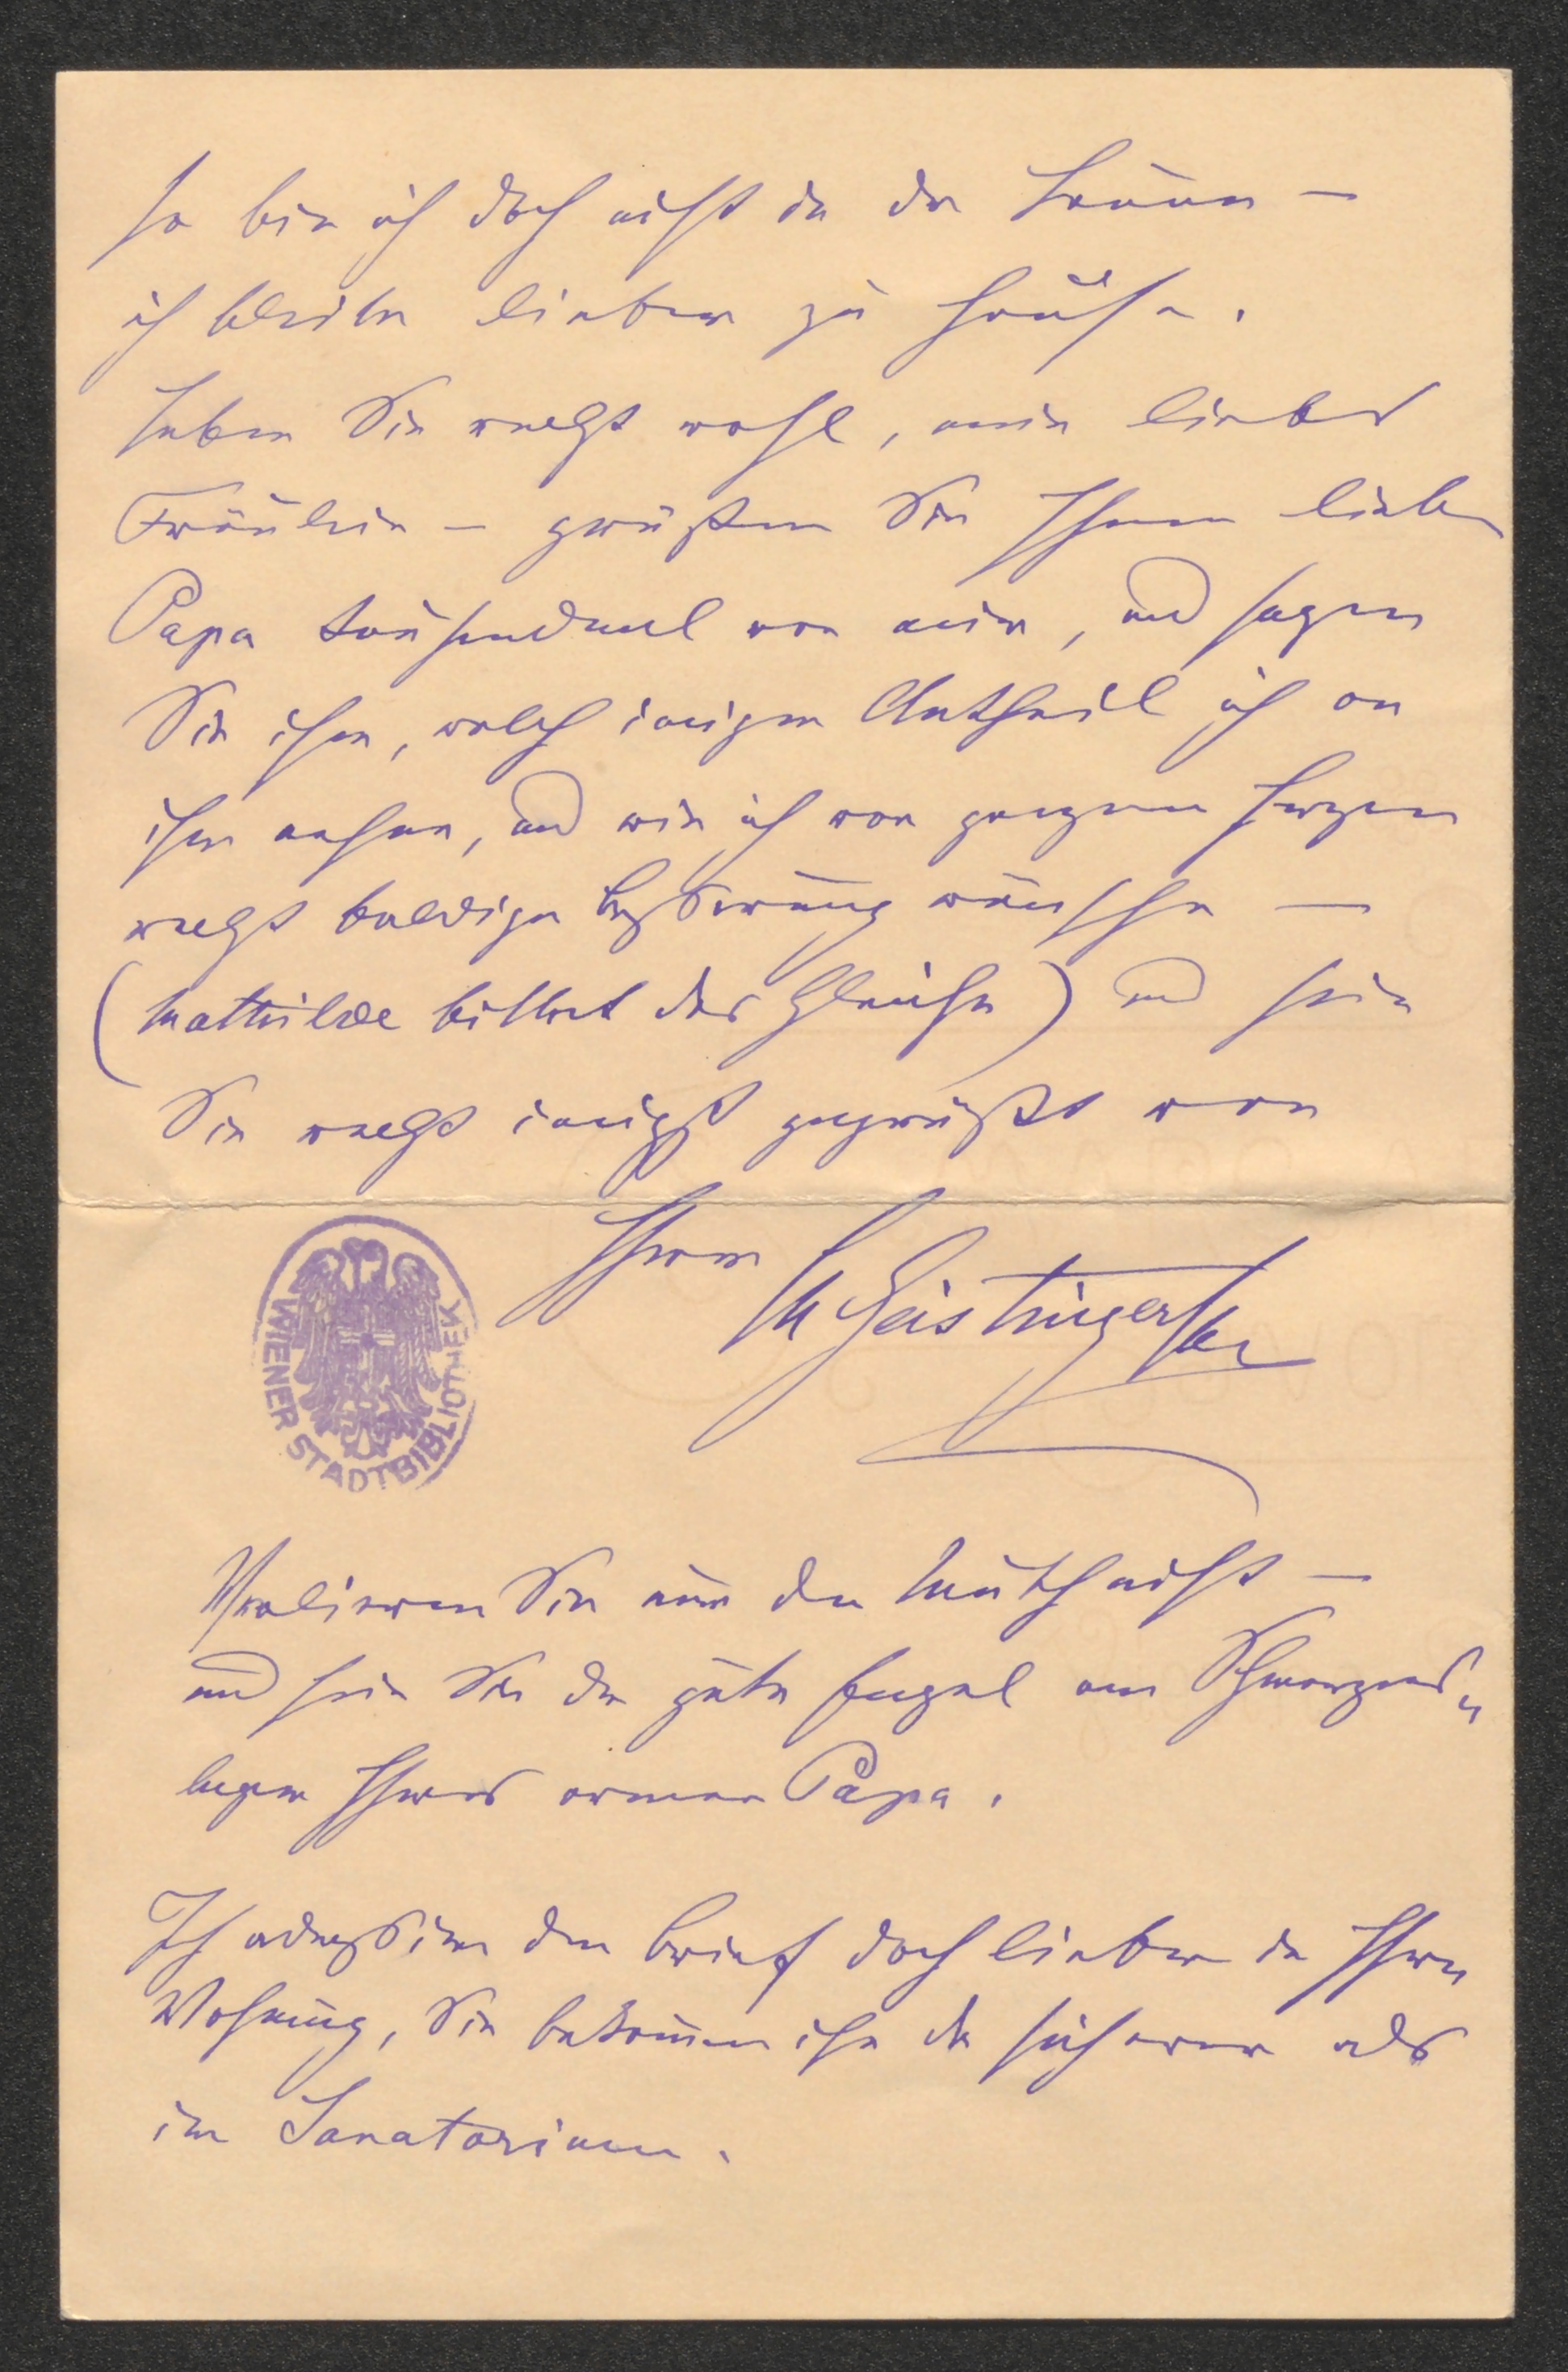 so bin ich doch nicht in der Laune –
ich bleibe lieber zu Hause.
Leben Sie recht wohl, mein liebes
Fräulein – grüßen Sie Ihren lieben
Papa tausendmal von mir, und sagen
Sie ihm, welch innigen Antheil ich an
ihm nehme, und wie ich von ganzem Herzen
recht baldige Besserung wünsche –
(Mathilde bittet das Gleiche) und sein
Sie recht innigst gegrüßt von
Ihrer
M Geistinger
WIENER STADTBIBLIOTHEK
Verlieren Sie nur den Muth nicht –
und sein Sie der gute Engel am Schmerzens„
lager Ihres armen Papa.
Ich adressire den Brief doch lieber in Ihre
Wohnung, Sie bekommen ihn da sicherer als
im Sanatorium.